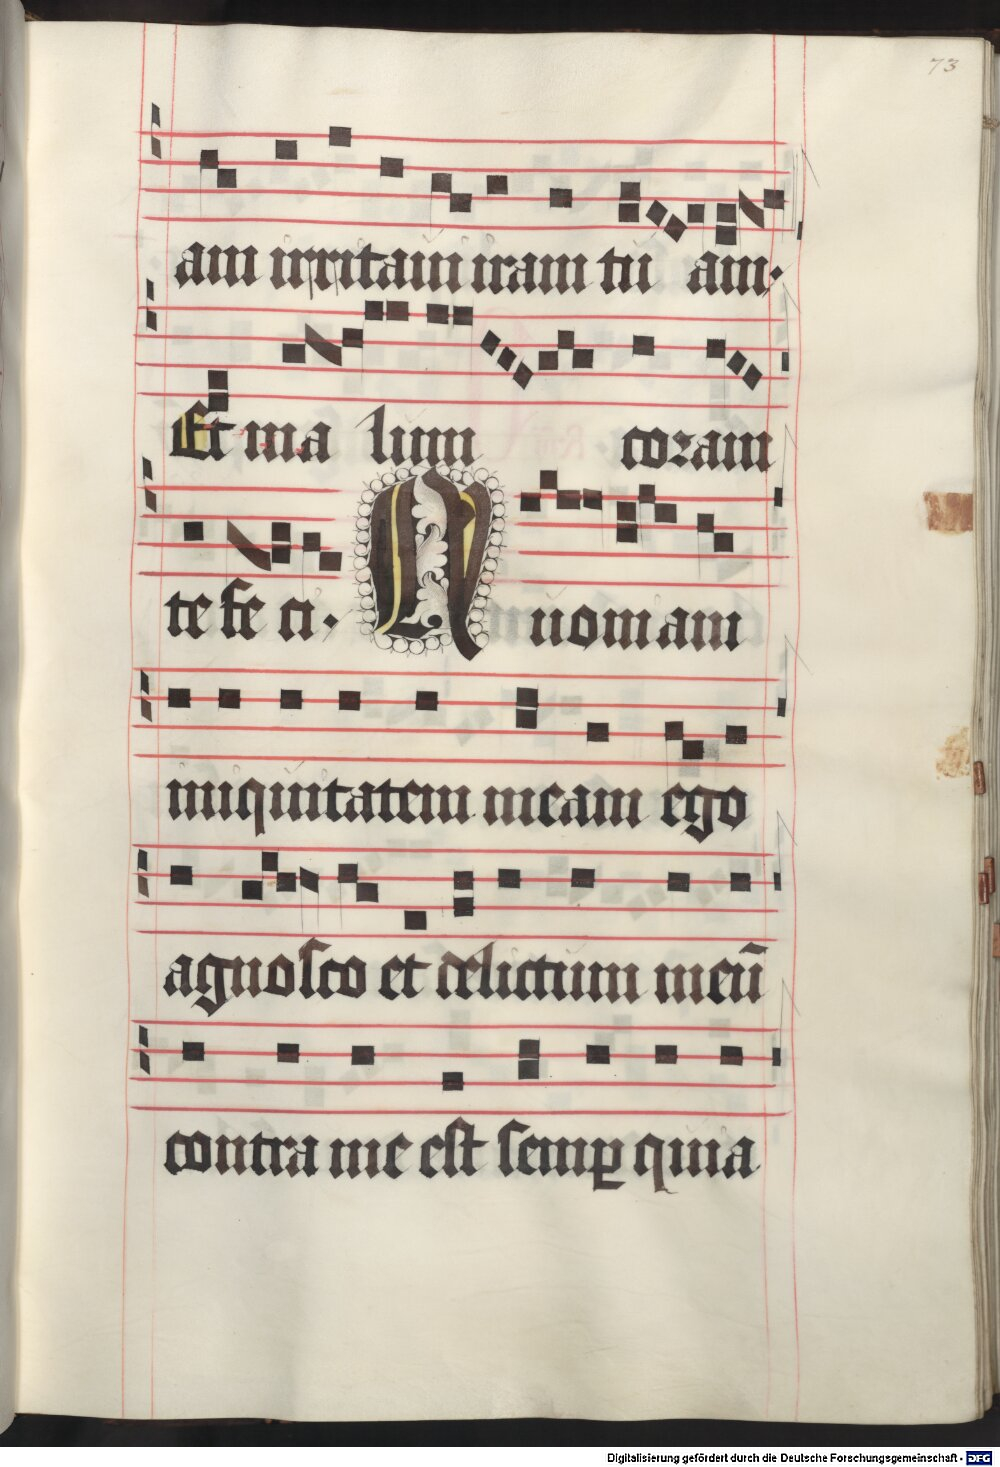 73
am irritavi iram tu am.
Et ma lum coram
te fe ci. Quoniam
iniquitatem meam ego
agnosco et delictum meū
contra me est semꝑ quia
Digitalisierung gefördert durch die Deutsche Forschungsgemeinschaft - DFG